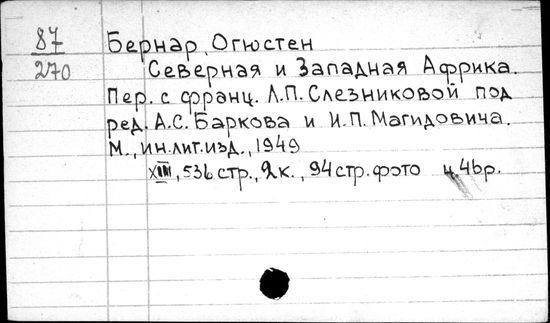 87 Бернар, Огюстен
270 Северная и Западная Африка.
Пер. с франц. Л.П. Слезниковой под
ред. А.С. Баркова и И.П. Магидовича.
М., ин.лит.изд., 1949
XIII, 536 стр., 2 к., 94 стр. фото ц. 46р.